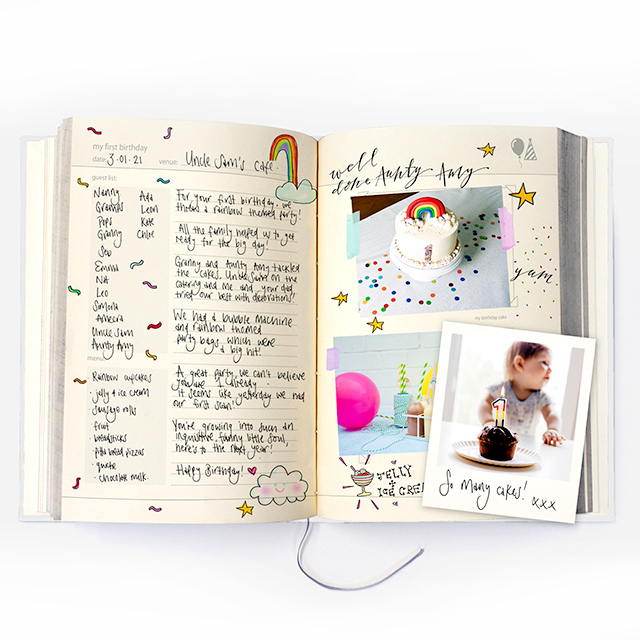 my first birthday
date: 3.01.21 venue: Uncle Sam's cafe.
guest list:
Nanny Ada
Grandpa Leon
Pops Kate
Granny Chloe
Seb
Emma
Nat
Leo
Simona
Ameera
Uncle Sam
Aunty Amy
menu
Rainbow cupcakes
- jelly & ice cream
- sausage rolls
- fruit
- breadsticks
- pitta bread pizzas
- quiche
- chocolate milk.
For your first birthday, we
threw a rainbow themed party!
All the family helped us to get
ready for the big day!
Granny and Aunty Amy tackled
the cakes. Uncle Sam on the
catering and me and your dad
tried our best with decorations!
We had a bubble machine
and rainbow themed
party bags which were
a big hit!
A great party, we can't believe
you are 1 already -
it seems like yesterday we had
our first scan!
You're growing into such an
inquisitive, funny little soul,
here's to the next year!
Happy Birthday!
well
done Aunty Amy
1
yum
my birthday cake
JELLY
+
ICE CREA
1
So many cakes! xxx